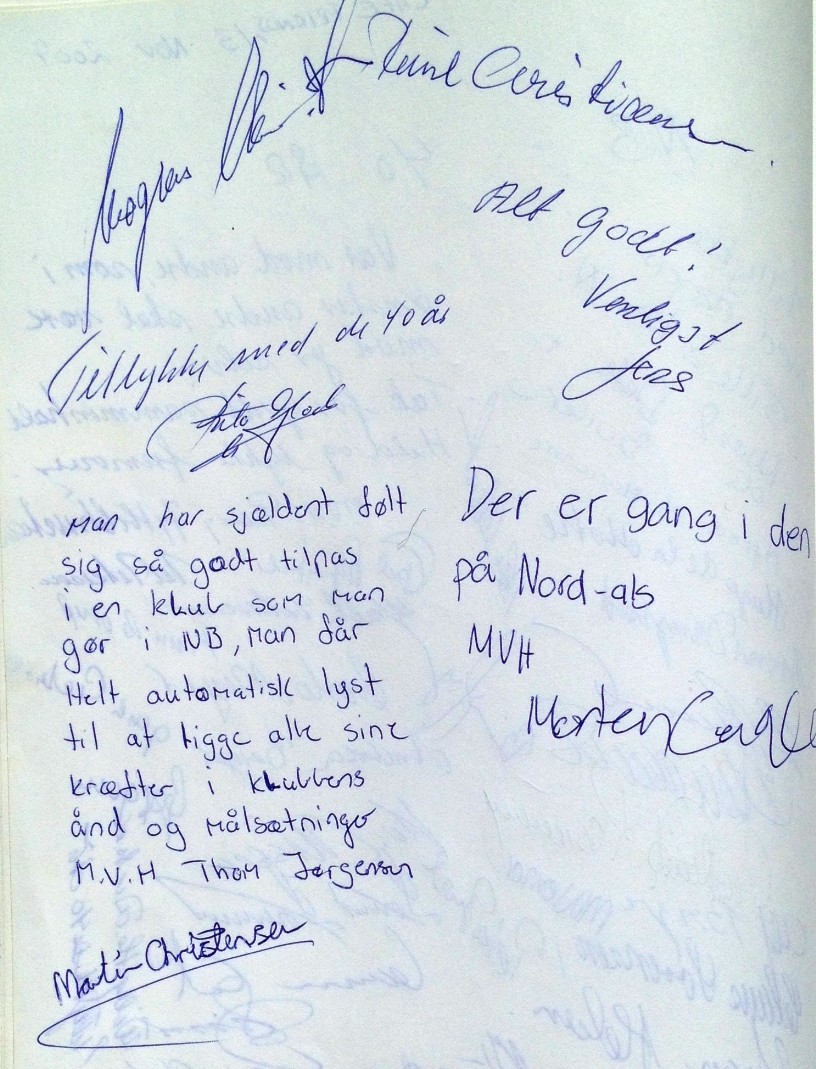 Mogens
Christiansen
Alt godt!
Venligst
Jens
Tillykke med de 40 år
Man har sjældent følt
sig så godt tilpas
i en klub som man
gør i NB, man får
Helt automatisk lyst
til at ligge alle sine
kræfter i klubbens
ånd og målsætninger
M.V.H Thom Jørgensen
Martin Christensen
Der er gang i den
på Nord-als
MVH
Morten